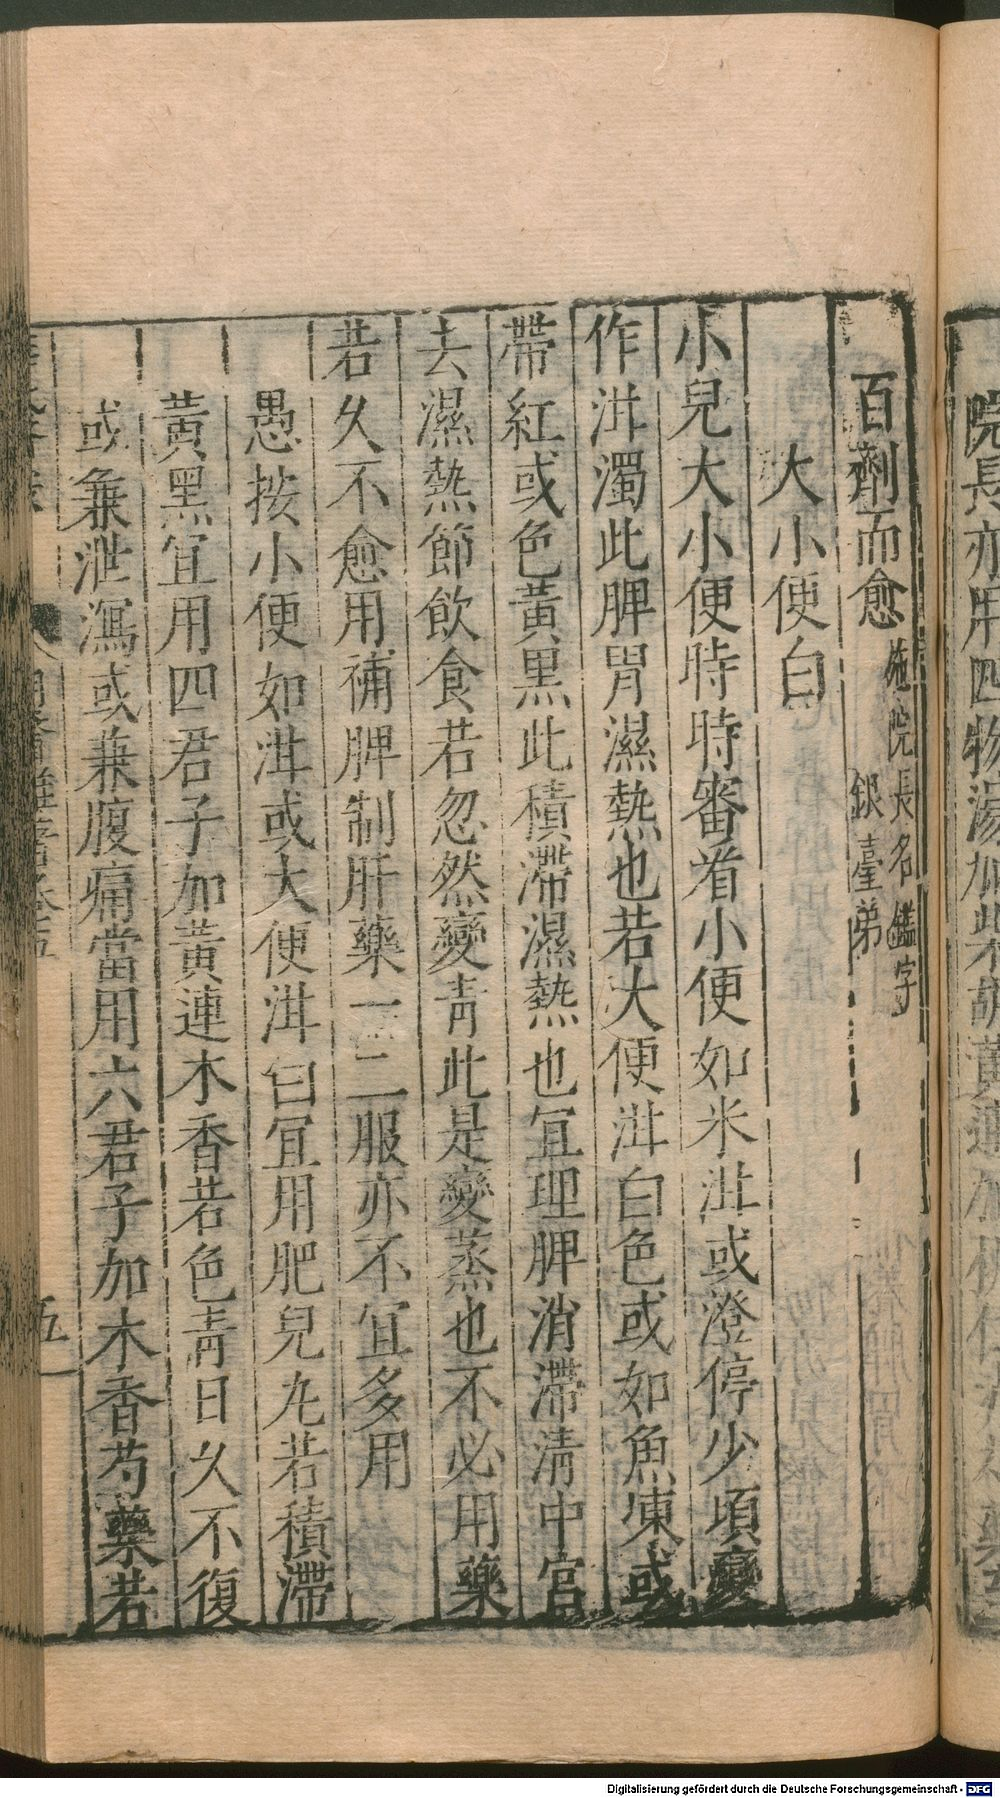 百劑而愈施院長名鑑字銀臺弟
大小便白
小兒大小便時時審看小便如米泔或澄停少頃變
作泔濁此脾胃濕熱也若大便泔白色或如魚凍或
帶紅或色黃黑此積滯濕熱也宜理脾消滯清中宮
去濕熱節飲食若忽然變青此是變蒸也不必用藥
若久不愈用補脾制肝藥一二服亦不宜多用
愚按小便如泔或大便泔白宜用肥兒丸若積滯
黃黑宜用四君子加黃連木香若色青日久不復
或兼泄瀉或兼腹痛當用六君子加木香芍藥若
五
院長亦用四物湯加柴胡黃連
Digitalisierung gefördert durch die Deutsche Forschungsgemeinschaft - DFG